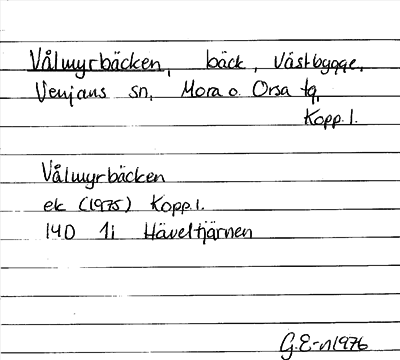 Vålmyrbäcken, bäck, Västbygge,
Venjans sn, Mora o. Orsa tg,
Kopp. l.
Vålmyrbäcken
ek (1975) Kopp. l.
14D 1i Häveltjärnen
G.E-n 1976